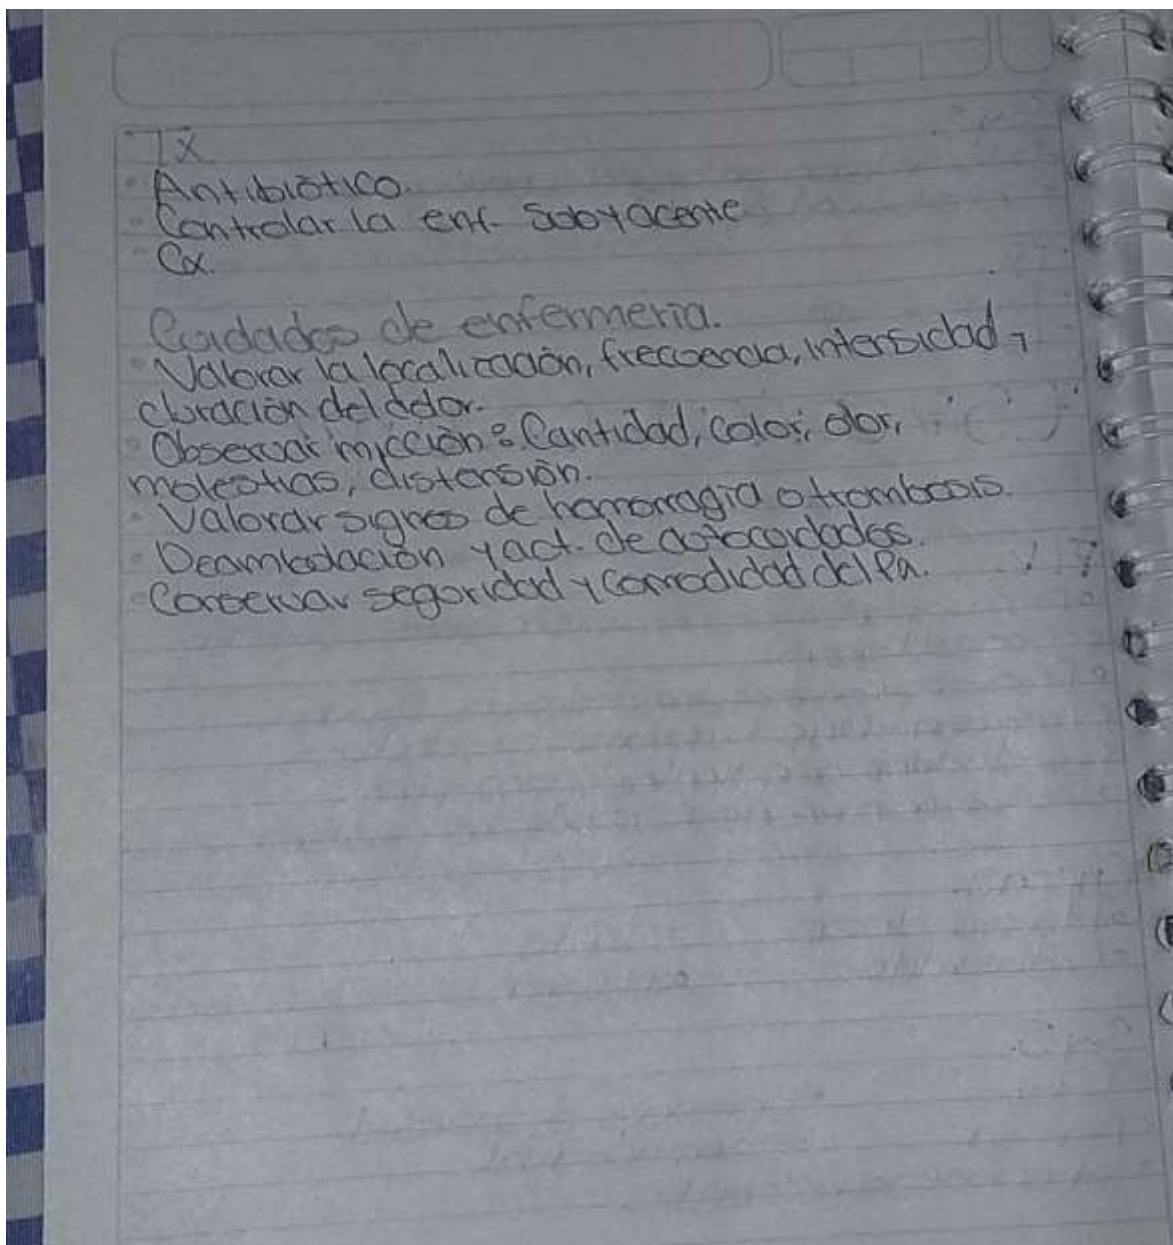 Tx
• Antibiótico.
• Controlar la enf. Subyacente
• Cx.
Cuidados de enfermería.
• Valorar la localización, frecuencia, intensidad y
duración del dolor.
• Observar micción: Cantidad, color, olor,
molestias, distensión.
• Valorar signos de hemorragia o trombosis.
• Deambulación y act. de autocuidados.
• Conservar seguridad y comodidad del Pa.